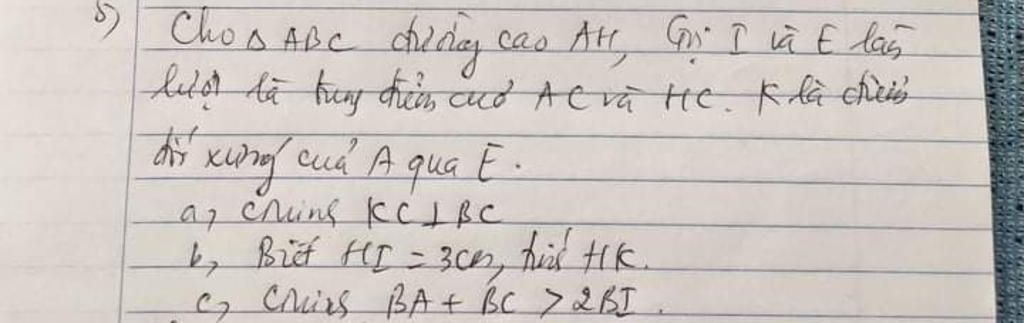 5) Cho Δ ABC đường cao AH, Gọi I và E lần
lượt là trung điểm của AC và HC. K là điểm
đối xứng của A qua E.
a, Chứng KC ⊥ BC
b, Biết HI = 3cm, tính HK.
c, Chứng BA + BC > 2BI.